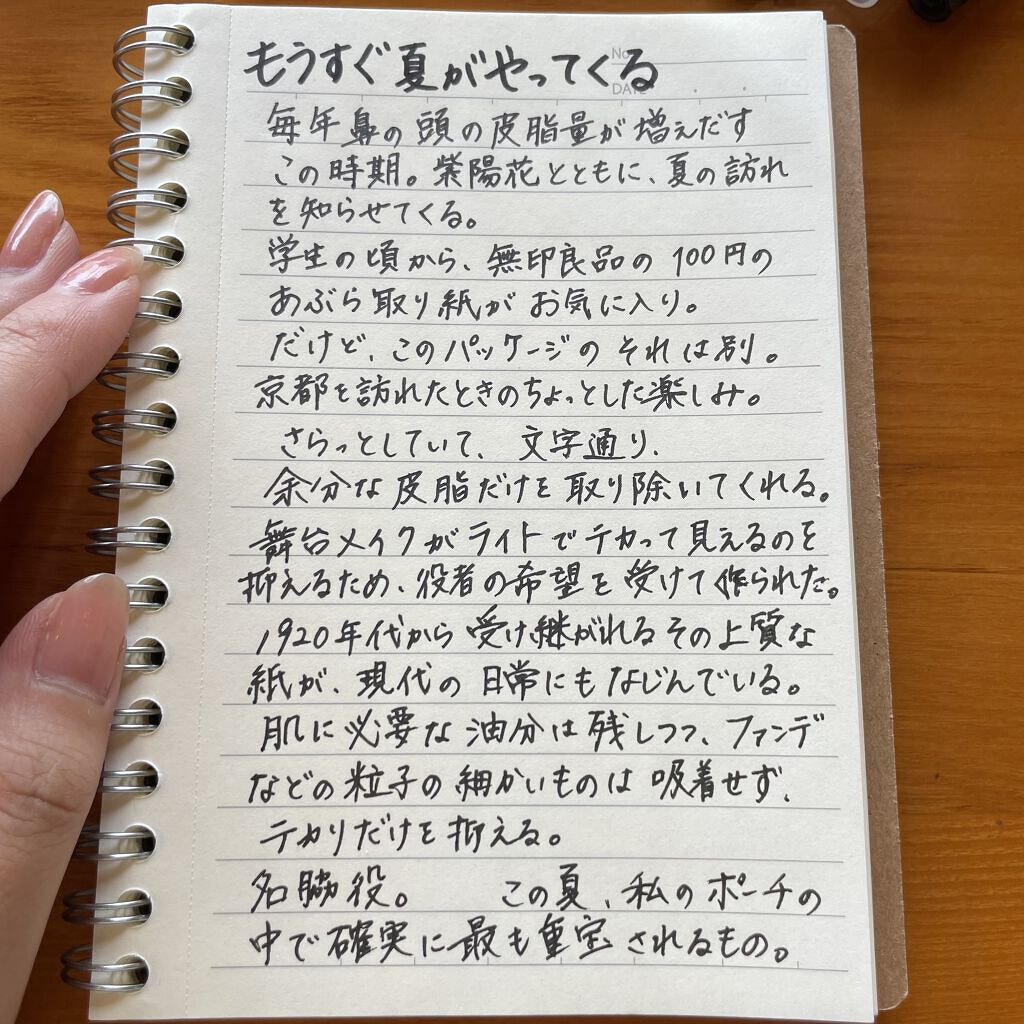 もうすぐ夏がやってくる
No.
DATE
毎年鼻の頭の皮脂量が増えだす
この時期。紫陽花とともに、夏の訪れ
を知らせてくる。
学生の頃から、無印良品の100円の
あぶら取り紙がお気に入り。
だけど、このパッケージのそれは別。
京都を訪れたときのちょっとした楽しみ。
さらっとしていて、文字通り、
余分な皮脂だけを取り除いてくれる。
舞台メイクがライトでテカって見えるのを
抑えるため、役者の希望を受けて作られた。
1920年代から受け継がれるその上質な
紙が、現代の日常にもなじんでいる。
肌に必要な油分は残しつつ、ファンデ
などの粒子の細かいものは吸着せず、
テカリだけを抑える。
名脇役。 この夏、私のポーチの
中で確実に最も重宝されるもの。